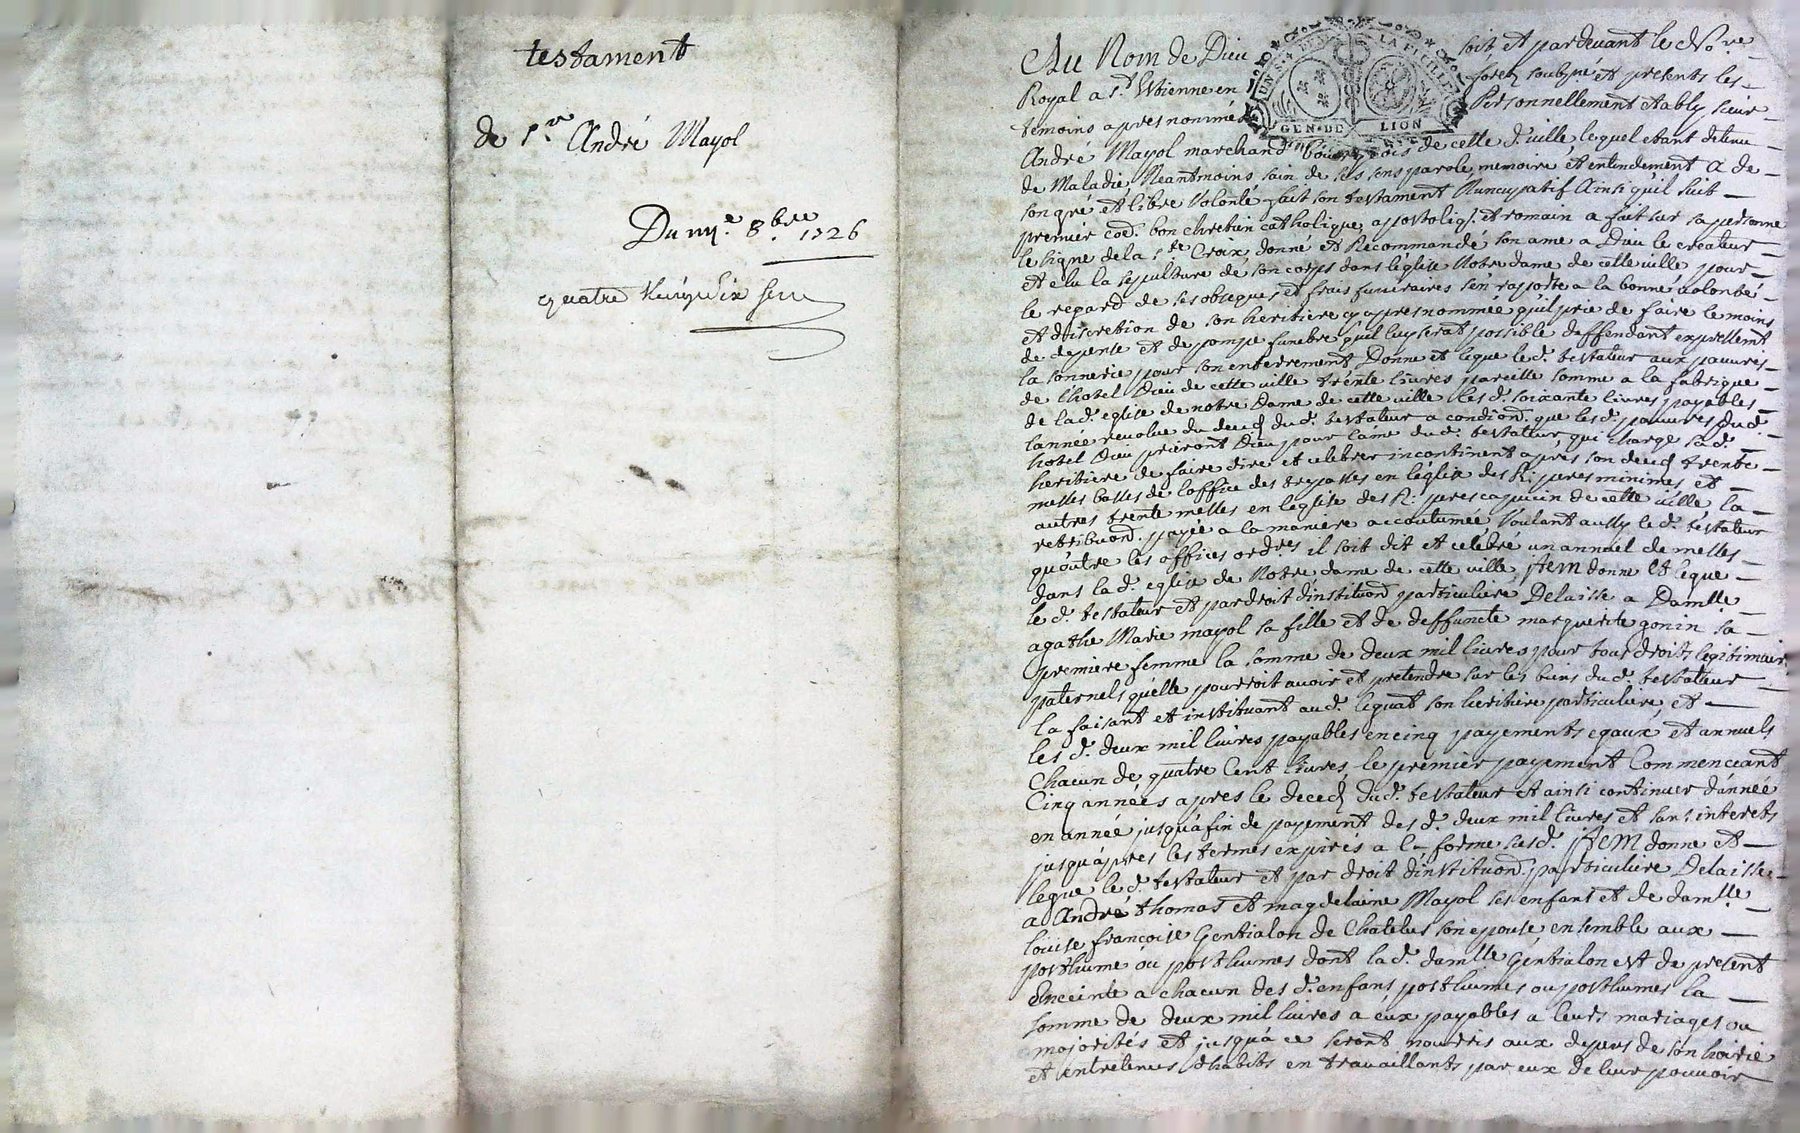 testament
de Sr André Mayol
Du 8.bre 1726
quatre
Au Nom de Dieu soit et pardevant le No.re
Royal a St. Etienne en forez soubzné et presents les
temoins apres nommés Personnellement etably sieur
UN S. LA FEUILLE
GEN. DE LION
André Mayol marchand bourgeois de cette d. ville, lequel etant detenu
de Maladie, Neantmoins sain de ses sens parole, memoire et entendement a de
son gré et libre Volonté fait son testament Nuncupatif Ainsi qu'il suit
premier coe. bon chretien catholique, apostoliq. et romain a fait sur sa personne
le signe de la Ste Croix, donné et Recommandé son ame a Dieu le createur
et elu la sepulture de son corps dans l'église Notre dame de cette ville pour
le regard de ses obseques et frais funeraires s'en raporte a la bonne volonté
et discretion de son heritiere cy apres nommée qu'il prie de faire le moins
de depense et de pompe funebre qu'il luy serat possible deffendant expressemt
la sonnerie pour son enterrement Donne et legue led. testateur aux pauvres
de l'hotel Dieu de cette ville trente livres pareille somme a la fabrique
de lad. eglise de notre Dame de cette ville, lesd. soixante livres payables
l'année revolue du deced dud. testateur a condion. que lesd. pauvres dud.
hotel Dieu prieront Dieu pour l'ame dud. testateur, qui charge sad.
heritiere de faire dire et celebrer incontinent apres son deced trente
messes basses de l'office des trepassés en l'église des R. peres minimes et
autres trente messes en l'eglise des R. peres capucin de cette ville, la
retribuon. payée a la maniere accoutumée, Voulant aussy led. testateur
qu'outre les offices ordres il soit dit et celebré un annuel de messes
dans lad. eglise de Notre dame de cette ville, Item donne et legue
led. testateur et par droit d'instituon. particuliere, Delaisse a Damlle
agathe Marie mayol sa fille et de deffuncte marguerite gonin sa
premiere femme la somme de deux mil livres pour tous droits legitimaires
paternels qu'elle pourroit avoir et pretendre sur les biens dud. testateur
la faisant et instituant aud. legat son heritiere particuliere, et
lesd. deux mil livres payables en cinq payements egaux et annuels
Chacun de quatre Cent livres, le premier payement Commenceant
Cinq années apres le deced dud. testateur et ainsi continuer d'année
en année jusqu'a fin de payement desd. deux mil livres et sans interets
jusqu'apres les termes expirés a la forme susd. Item donne et
legue led. testateur et par droit d'instituon. particuliere Delaisse
a André thomas et magdelaine Mayol ses enfans et de damlle
louise françoise Gentialon de Chatelus son epouse ensemble aux
posthume ou posthumes dont lad. damlle Gentialon est de present
Enceinte a chacun desd. enfans posthumes ou posthumes la
somme de deux mil livres a eux payables a leurs mariages ou
majorités et jusqu'a ce seront nourris aux depens de son hoirie
et entretenus d'habits en travaillants par eux de leur pouvoir